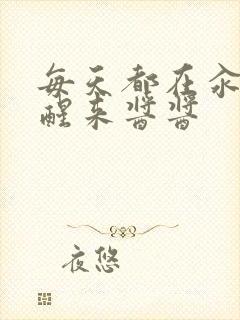 每天都在汆
醒来酱酱
夜悠